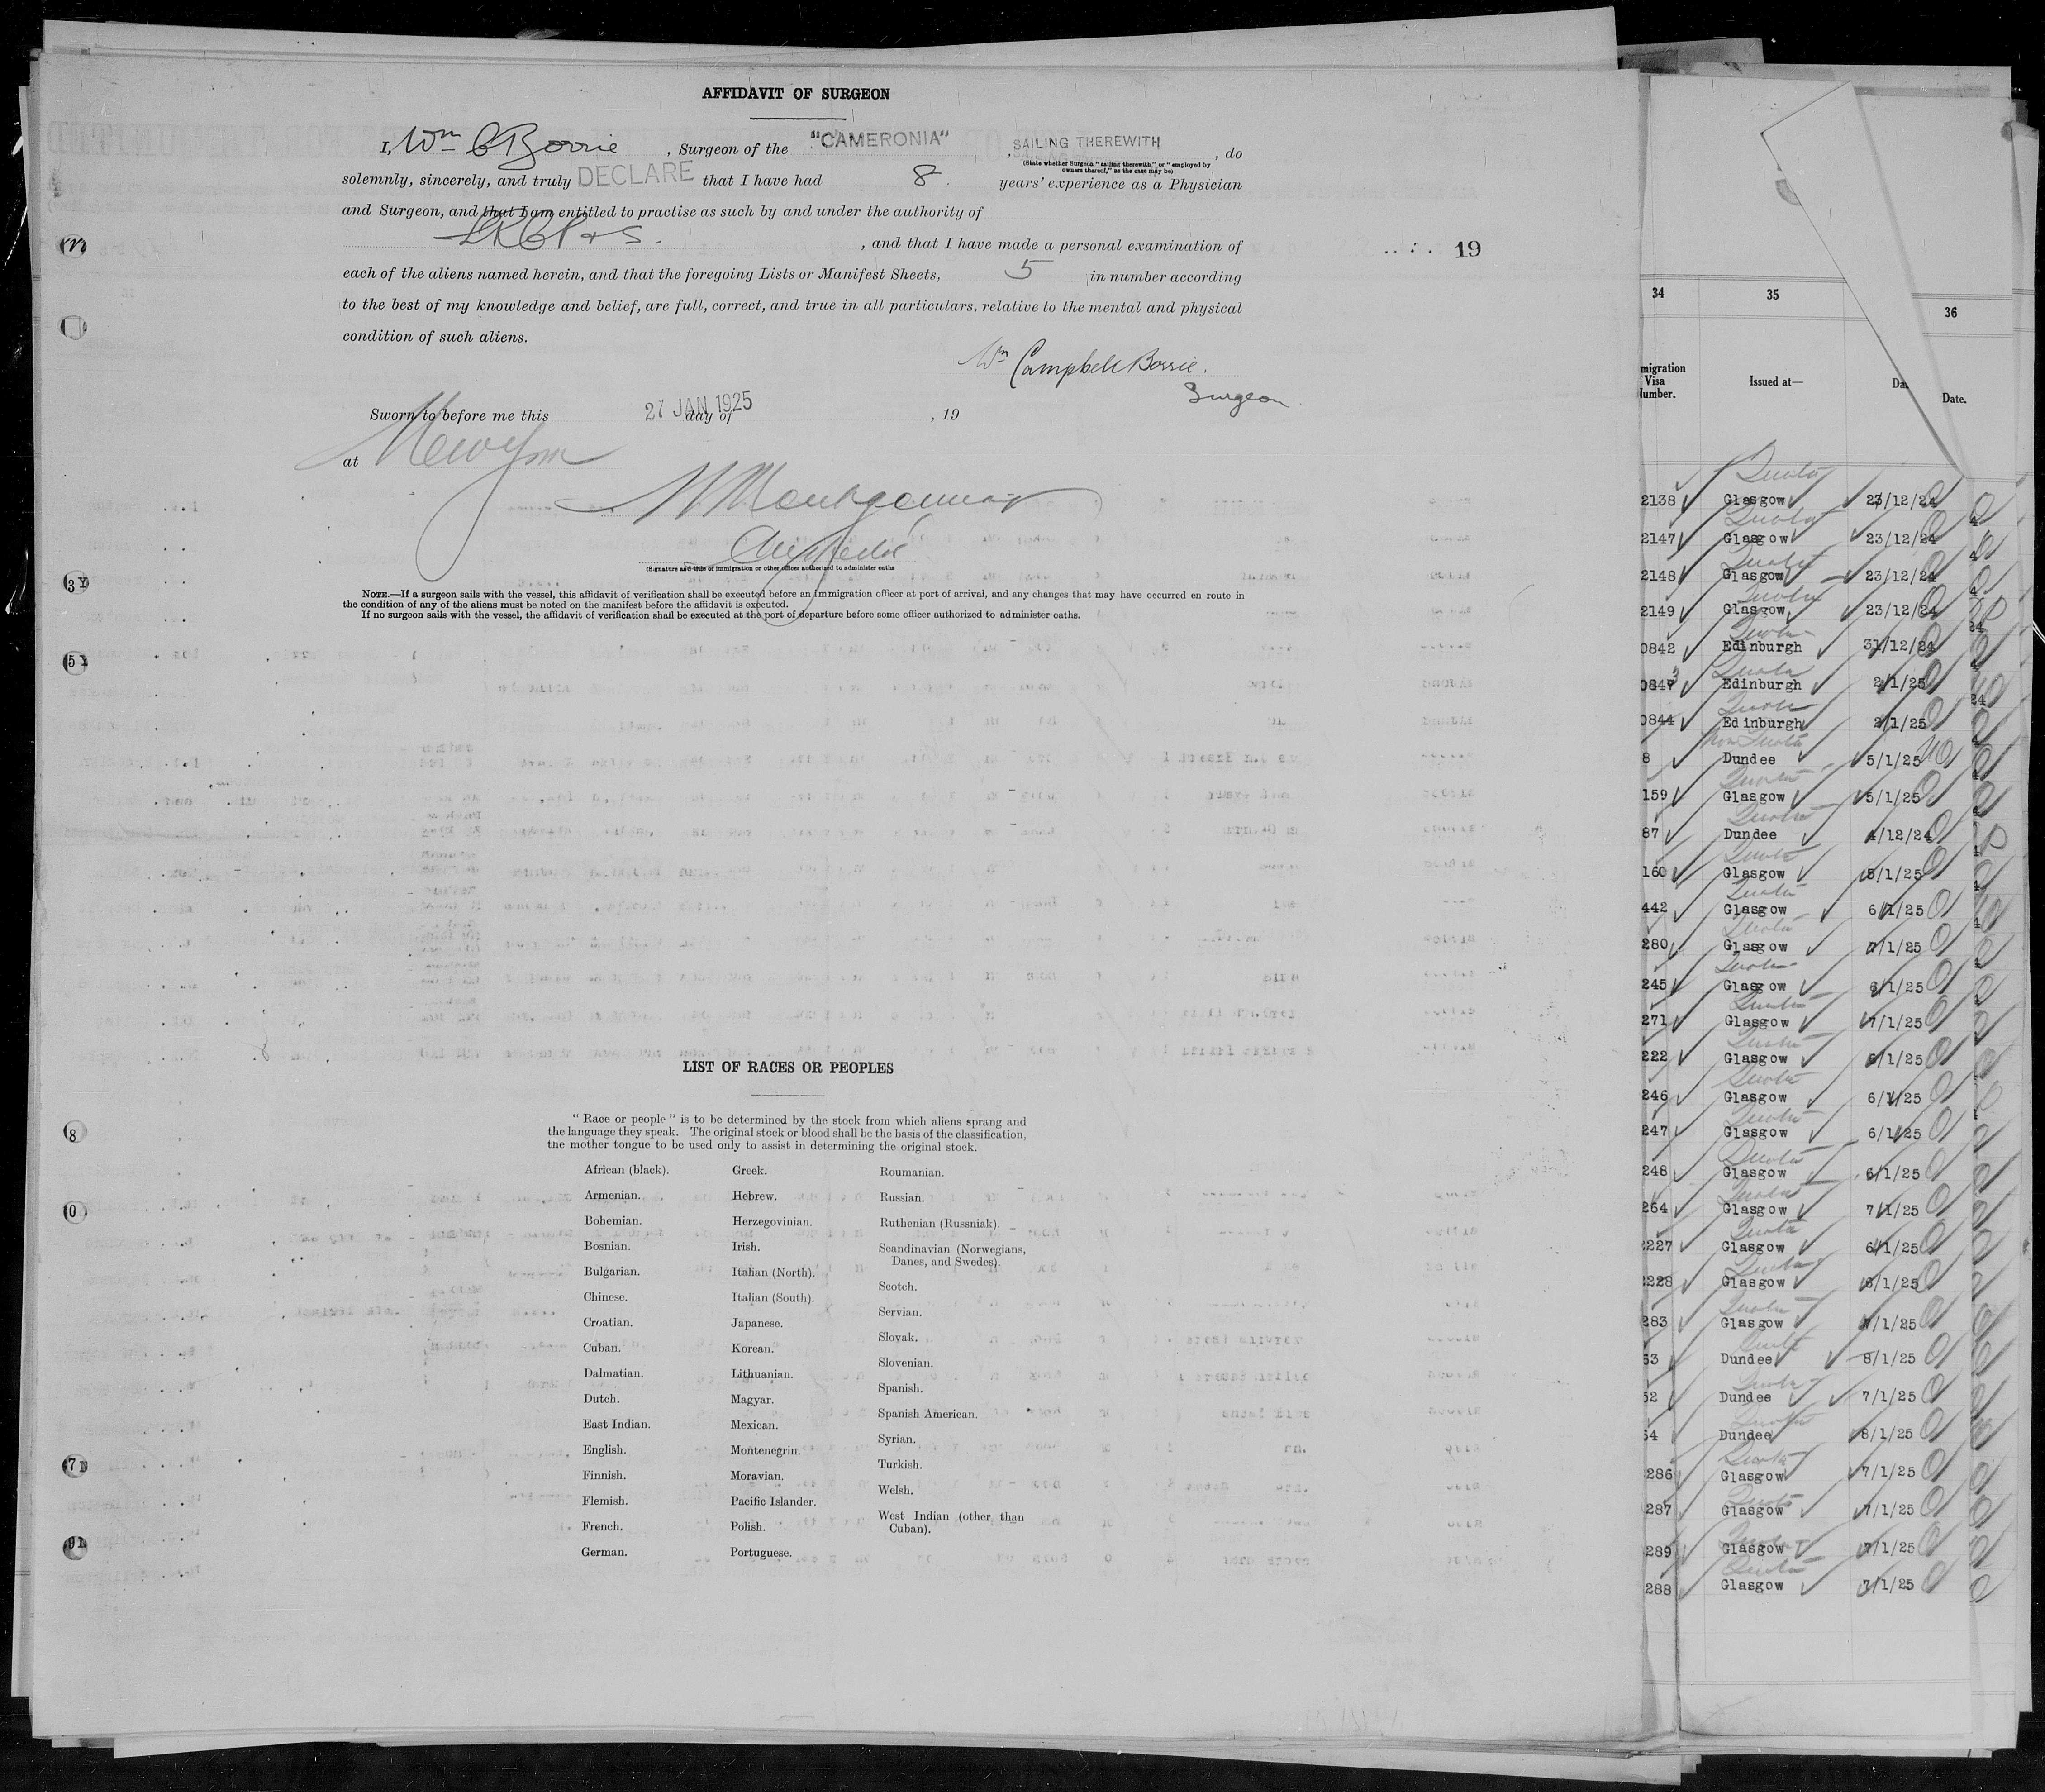 AFFIDAVIT OF SURGEON
I, Wm C Borrie, Surgeon of the "CAMERONIA", SAILING THEREWITH, do
(State whether Surgeon "sailing therewith," or "employed by
owners thereof," as the case may be)
solemnly, sincerely, and truly DECLARE that I have had 8. years' experience as a Physician
and Surgeon, and that I am entitled to practise as such by and under the authority of
LRCP&S., and that I have made a personal examination of
each of the aliens named herein, and that the foregoing Lists or Manifest Sheets, 5 in number according
to the best of my knowledge and belief, are full, correct, and true in all particulars, relative to the mental and physical
condition of such aliens.
Wm Campbell Borrie.
Surgeon.
Sworn to before me this 27 JAN 1925 day of , 19
at New York
W Montgomery
(Signature and title of immigration or other officer authorized to administer oaths
NOTE.—If a surgeon sails with the vessel, this affidavit of verification shall be executed before an immigration officer at port of arrival, and any changes that may have occurred en route in
the condition of any of the aliens must be noted on the manifest before the affidavit is executed.
If no surgeon sails with the vessel, the affidavit of verification shall be executed at the port of departure before some officer authorized to administer oaths.
LIST OF RACES OR PEOPLES
"Race or people" is to be determined by the stock from which aliens sprang and
the language they speak. The original stock or blood shall be the basis of the classification,
the mother tongue to be used only to assist in determining the original stock.
African (black).
Armenian.
Bohemian.
Bosnian.
Bulgarian.
Chinese.
Croatian.
Cuban.
Dalmatian.
Dutch.
East Indian.
English.
Finnish.
Flemish.
French.
German.
Greek.
Hebrew.
Herzegovinian.
Irish.
Italian (North).
Italian (South).
Japanese.
Korean.
Lithuanian.
Magyar.
Mexican.
Montenegrin.
Moravian.
Pacific Islander.
Polish.
Portuguese.
Roumanian.
Russian.
Ruthenian (Russniak).
Scandinavian (Norwegians,
Danes, and Swedes).
Scotch.
Servian.
Slovak.
Slovenian.
Spanish.
Spanish American.
Syrian.
Turkish.
Welsh.
West Indian (other than
Cuban).
19
34 35 36
migration
Visa
Number.
Issued at—
Date.
Quota
2138 Glasgow 23/12/24
Quota
2147 Glasgow 23/12/24
Quota
2148 Glasgow 23/12/24
Quota
2149 Glasgow 23/12/24
Quota
0842 Edinburgh 31/12/24
Quota
0843 Edinburgh 2/1/25
Quota
0844 Edinburgh 2/1/25
Non Quota
8 Dundee 5/1/25
Quota
159 Glasgow 5/1/25
Quota
87 Dundee 4/12/24
Quota
160 Glasgow 5/1/25
Quota
442 Glasgow 6/1/25
Quota
280 Glasgow 7/1/25
Quota
245 Glasgow 6/1/25
Quota
271 Glasgow 7/1/25
Quota
222 Glasgow 6/1/25
Quota
246 Glasgow 6/1/25
Quota
247 Glasgow 6/1/25
Quota
248 Glasgow 6/1/25
Quota
264 Glasgow 7/1/25
Quota
2227 Glasgow 6/1/25
Quota
2228 Glasgow 6/1/25
Quota
283 Glasgow 7/1/25
Quota
53 Dundee 8/1/25
Quota
52 Dundee 7/1/25
Quota
54 Dundee 8/1/25
Quota
286 Glasgow 7/1/25
Quota
287 Glasgow 7/1/25
Quota
289 Glasgow 7/1/25
Quota
288 Glasgow 7/1/25